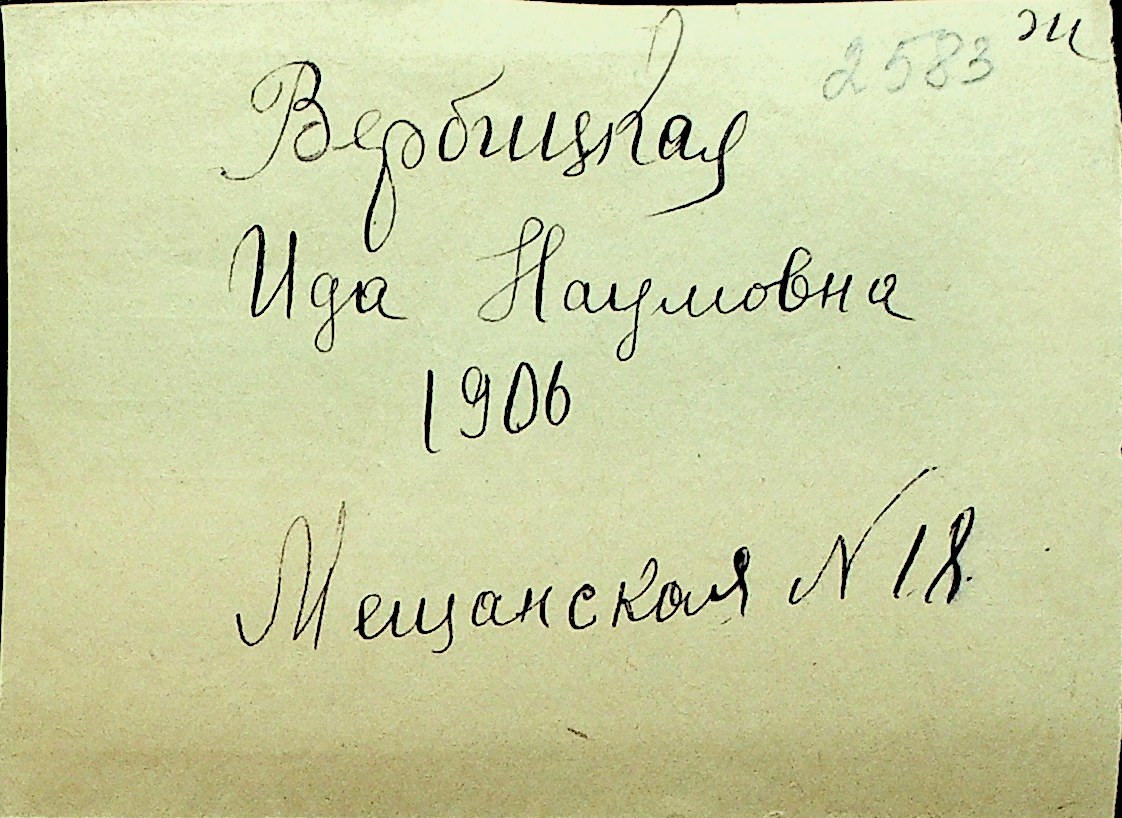 2583 ж
Вербицкая
Ида Наумовна
1906
Мещанская N 18